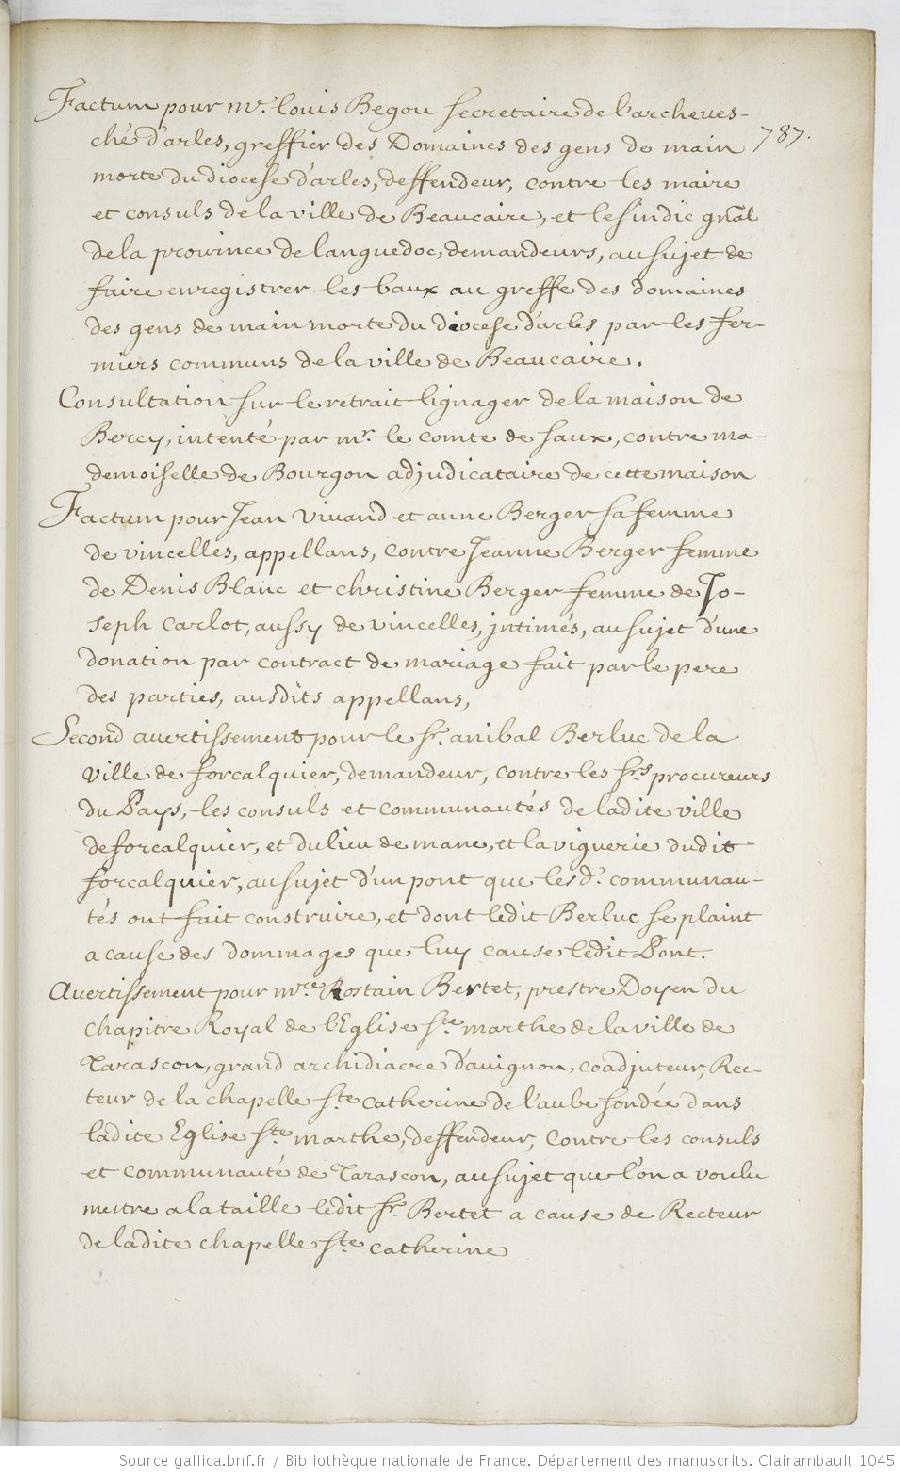 Factum pour mr. louis Begou secretaire de l'archeues-
ché d'arles, greffier des Domaines des gens de main
787.
morte du diocese d'arles, deffendeur, contre les maire
et consuls de la ville de Beaucaire, et le sindic gnãl
de la prouince de languedoc, demandeurs, au sujet de
faire enregistrer les baux au greffe des domaines
des gens de main morte du diocese d'arles par les fer-
miers communs de la ville de Beaucaire.
Consultation sur le retrait lignager de la maison de
Bercy, intenté par mr. le comte de saux, contre ma-
demoiselle de Bourgon adjudicataire de cette maison
Factum pour Jean Viuand et anne Berger sa femme
de vincelles, appellans, contre Jeanne Berger femme
de Denis Blanc et christine Berger femme de Jo-
seph Carlot, aussy de vincelles, intimés, au sujet d'une
donation par contract de mariage fait par le pere
des parties, ausdits appellans,
Second auertissement pour le sr. anibal Berluc de la
ville de forcalquier, demandeur, contre les srs procureurs
du Pays, les consuls et communautés de ladite ville
de forcalquier, et du lieu de mane, et la viguerie dudit
forcalquier, au sujet d'un pont que lesd. communau-
tés ont fait construire, et dont ledit Berluc se plaint
a cause des dommages que luy cause ledit Pont.
Auertissement pour mre Rostain Bertet, prestre Doyen du
chapitre Royal de l'Eglise ste marthe de la ville de
Tarascon, grand archidiacre d'auignon, coadjuteur, Rec-
teur de la chapelle ste catherine de l'aube fondée dans
ladite Eglise ste marthe, deffendeur, contre les consuls
et communauté de Tarascon, au sujet que l'on a voulu
mettre a la taille ledit sr. Bertet a cause de Recteur
de ladite chapelle ste catherine
Source gallica.bnf.fr / Bibliothèque nationale de France. Département des manuscrits. Clairambault 1045